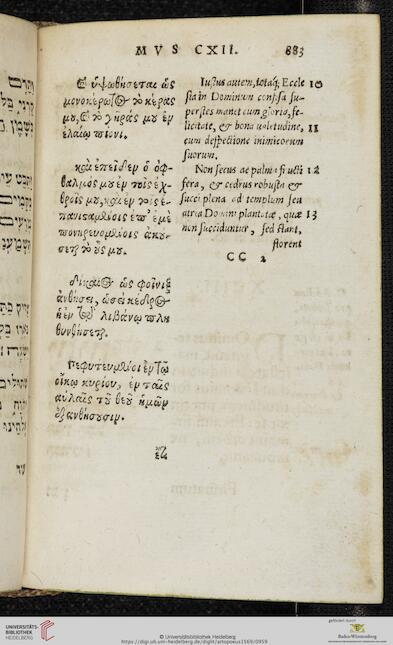 MVS CXII. 883
Καὶ ὑψωθήσεται ὡς
μονοκέρωτος τὸ κέρας
μου, καὶ τὸ γῆράς μου ἐν
ἐλαίῳ πίονι.
καὶ ἐπεῖδεν ὁ ὀφ-
θαλμός μου ἐν τοῖς ἐχ-
θροῖς μου, καὶ ἐν τοῖς ἐ-
πανισταμένοις ἐπ' ἐμὲ
πονηρευομένοις ἀκού-
σεται τὸ οὖς μου.
δίκαιος ὡς φοῖνιξ
ἀνθήσει, ὡσεὶ κέδρος
ἡ ἐν τῷ λιβάνῳ πλη
θυνθήσεται.
Πεφυτευμένοι ἐν τῷ
οἴκῳ κυρίου, ἐν ταῖς
αὐλαῖς τοῦ θεοῦ ἡμῶν
ἐξανθήσουσιν.
ἔτι
Iustus autem, totaq; Eccle 10
sia in Dominum confisa su-
perstes manet cum gloria, fe-
licitate, & bona ualetudine, 11
cum despectione inimicorum
suorum.
Non secus ac palma fructi 12
fera, & cedrus robusta &
succi plena ad templum seu
atria Domini plantatae, quae 13
non succiduntur, sed stant,
florent
CC 2
UNIVERSITÄTS-
BIBLIOTHEK
HEIDELBERG
© Universitätsbibliothek Heidelberg
https://digi.ub.uni-heidelberg.de/diglit/artopoeus1569/0959
gefördert durch
Baden-Württemberg